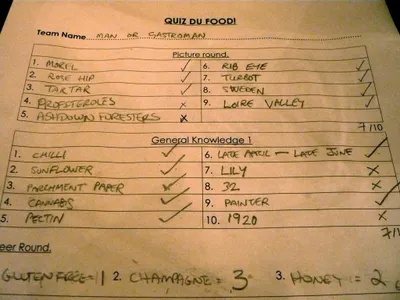 QUIZ DU FOOD!
Team Name MAN OR GASTROMAN
Picture round.
1. MOREL 6. RIB EYE
2. ROSE HIP 7. TURBOT
3. TARTAR 8. SWEDEN
4. PROFITEROLES 9. LOIRE VALLEY
5. ASHDOWN FORESTERS
7/10
General Knowledge 1
1. CHILLI 6. LATE APRIL - LATE JUNE
2. SUNFLOWER 7. LILY
3. PARCHMENT PAPER 8. 32
4. CANNABIS 9. PAINTER
5. PECTIN 10. 1920
7/1
eer Round.
GLUTEN FREE = 1 2. CHAMPAGNE = 3 3. HONEY = 2